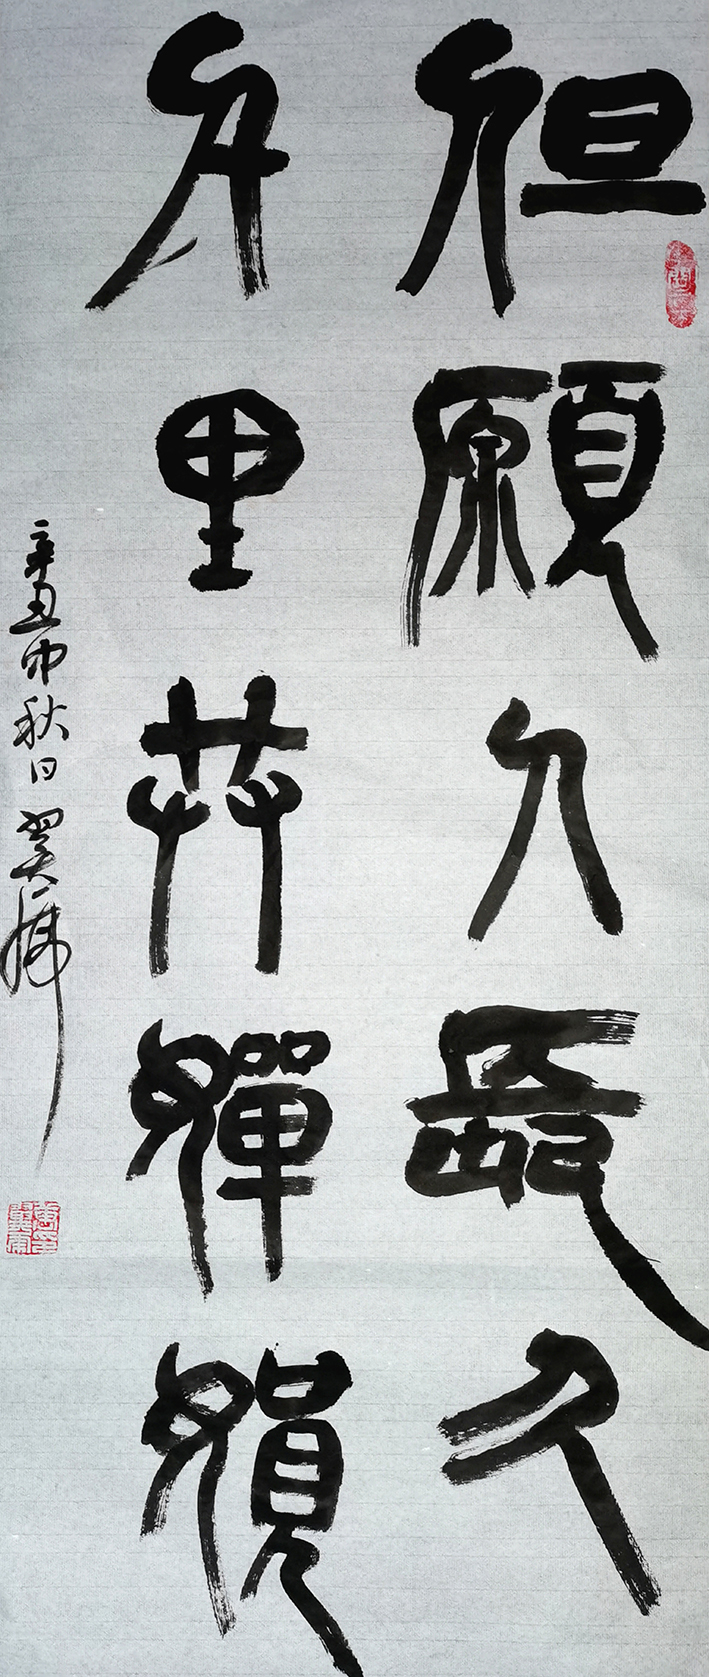 但願人長久
千里共嬋娟
辛丑中秋日翼虎